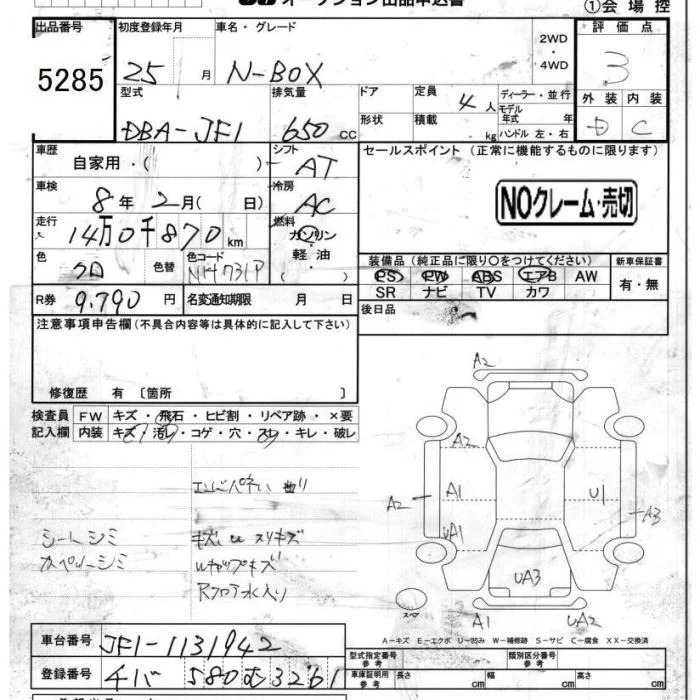 オークション出品申込書
①会場控
出品番号
5285
初度登録年月
25 月
車名・グレード
N-BOX
2WD
・
4WD
評価点
3
外装 内装
D C
型式
DBA-JF1
排気量
650 cc
ドア
形状
定員
4 人
積載
kg
ディーラー・並行
モデル
年式 年
ハンドル 左・右
車歴
自家用・( )
シフト
AT
セールスポイント(正常に機能するものに限ります)
NOクレーム・売切
車検
8年 2月( 日)
冷房
AC
走行
14万0千870 km
燃料
ガソリン
軽油・
( )
色
クロ
色替
色コード
NH731P
装備品(純正品に限り○をつけてください)
PS PW ABS エアB AW
SR ナビ TV カワ
新車保証書
有・無
R券 9.790 円
名変通知期限 月 日
後日品
注意事項申告欄(不具合内容等は具体的に記入して下さい)
修復歴 有〔箇所 〕
検査員
記入欄
FW キズ・飛石・ヒビ割・リペア跡・×要
内装 キズ・汚レ・コゲ・穴・スレ・キレ・破レ
シートシミ
R フロア水入り
A2
A2
A1
UA1
A2
U1
A3
UA3
A1
UA2
スペア
A-キズ E-エクボ U-凹み W-補修跡 S-サビ C-腐食 XX-交換済
車台番号 JF1-1131942
登録番号
580 む 3261
型式指定番号
参考
類別区分番号
参考
車庫証明用
参考
長さ cm
幅 cm
高さ cm